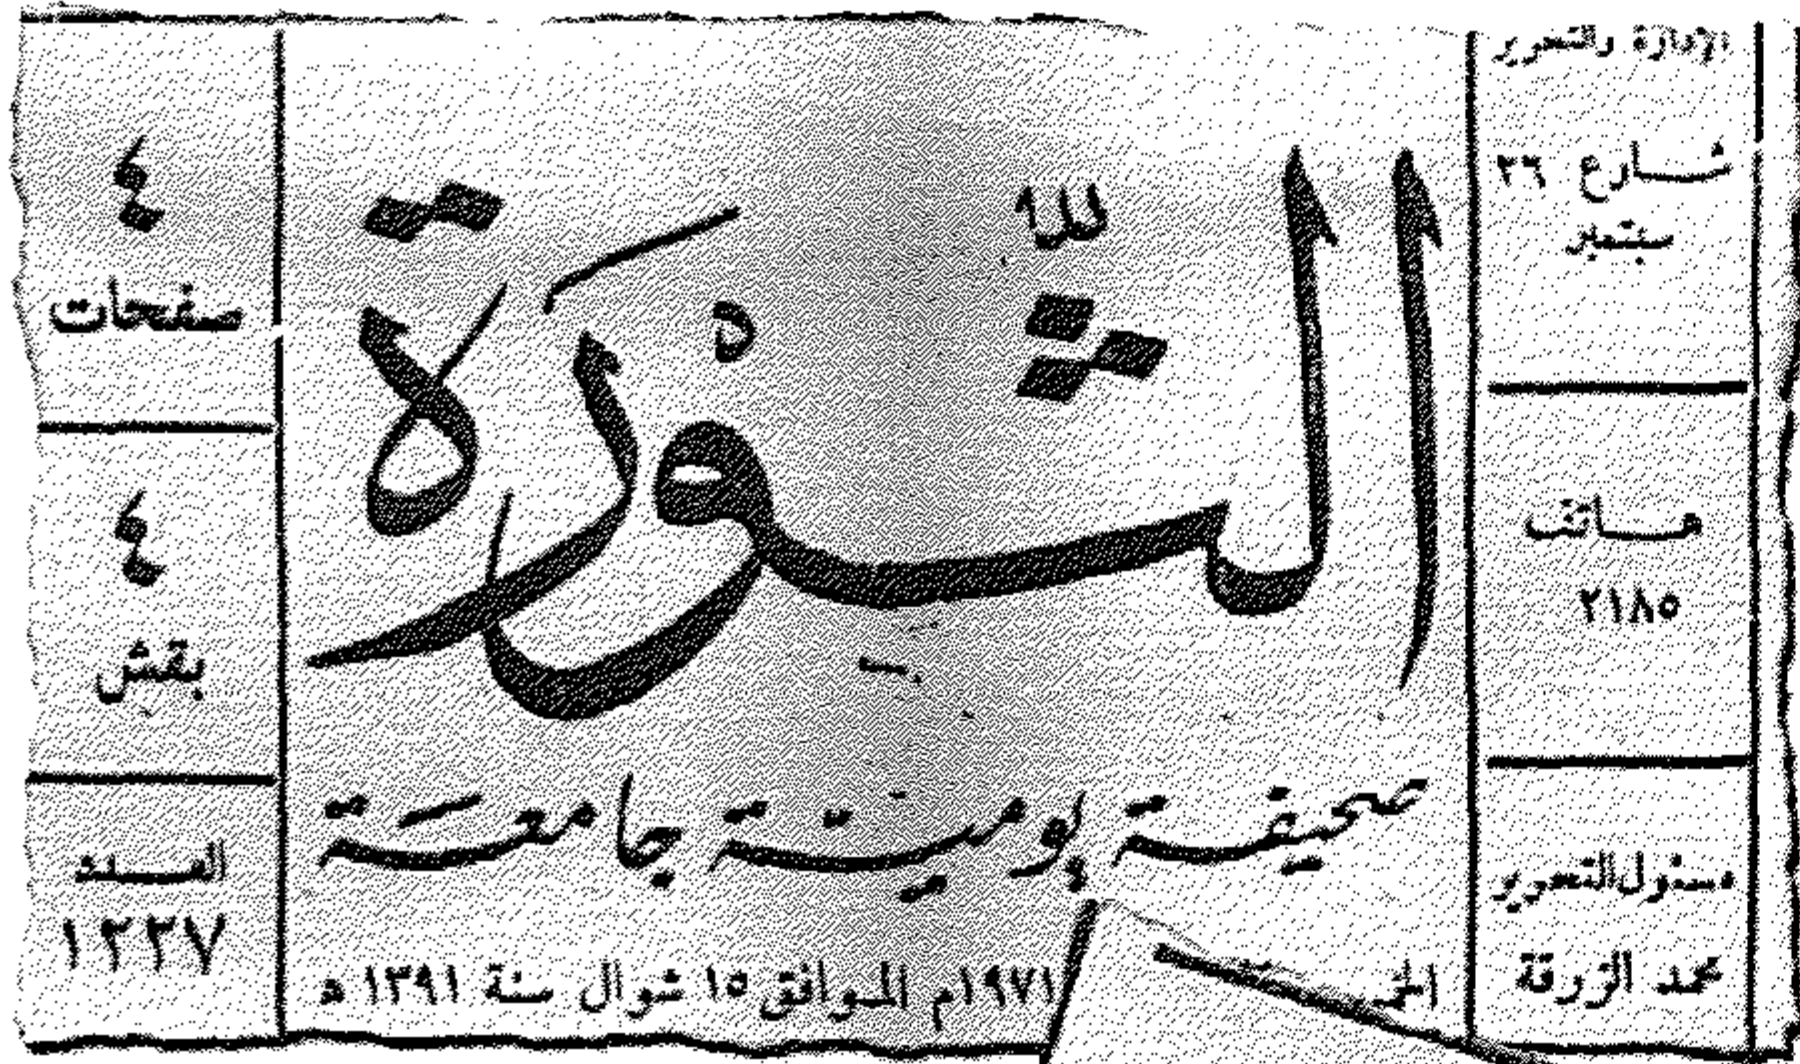 الإدارة والتحرير
شارع ٢٦
سبتمبر
هاتف
٢١٨٥
مسئول التحرير
محمد الزرقة
الثورة
صحيفة يومية جامعة
١٩٧١م الموافق ١٥ شوال سنة ١٣٩١ هـ
٤
صفحات
٤
بقش
العدد